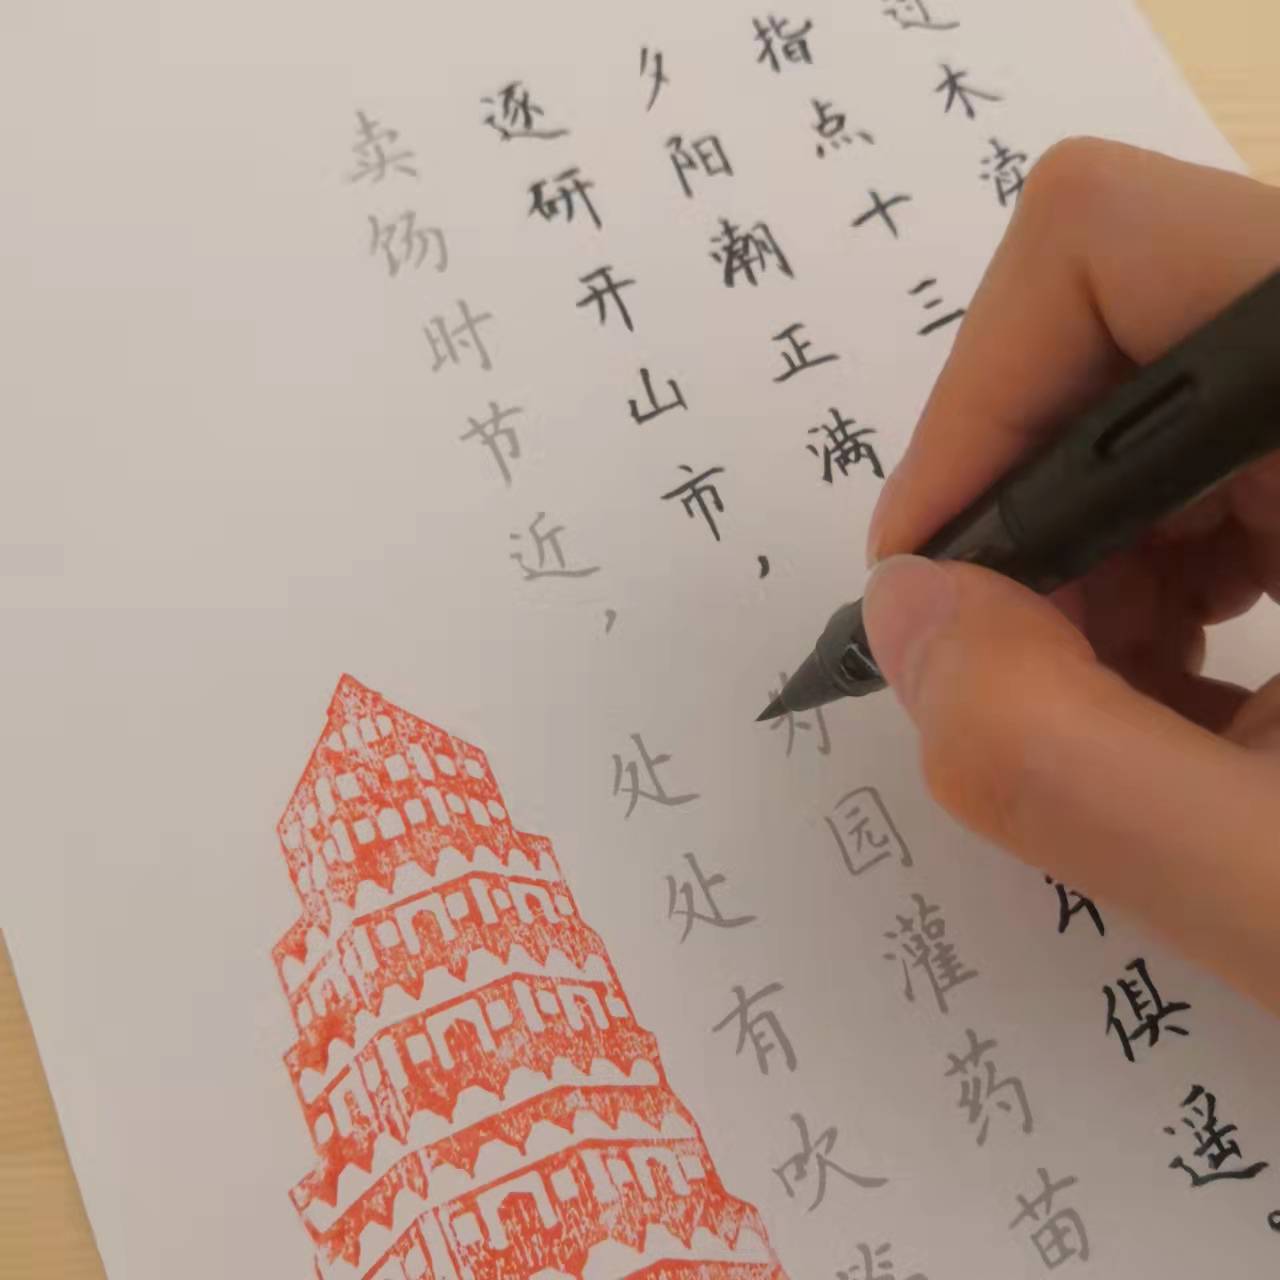 过木渎
指点十三
夕阳潮正满俱遥。
逐研开山市，园灌药苗
卖饧时节近，处处有吹